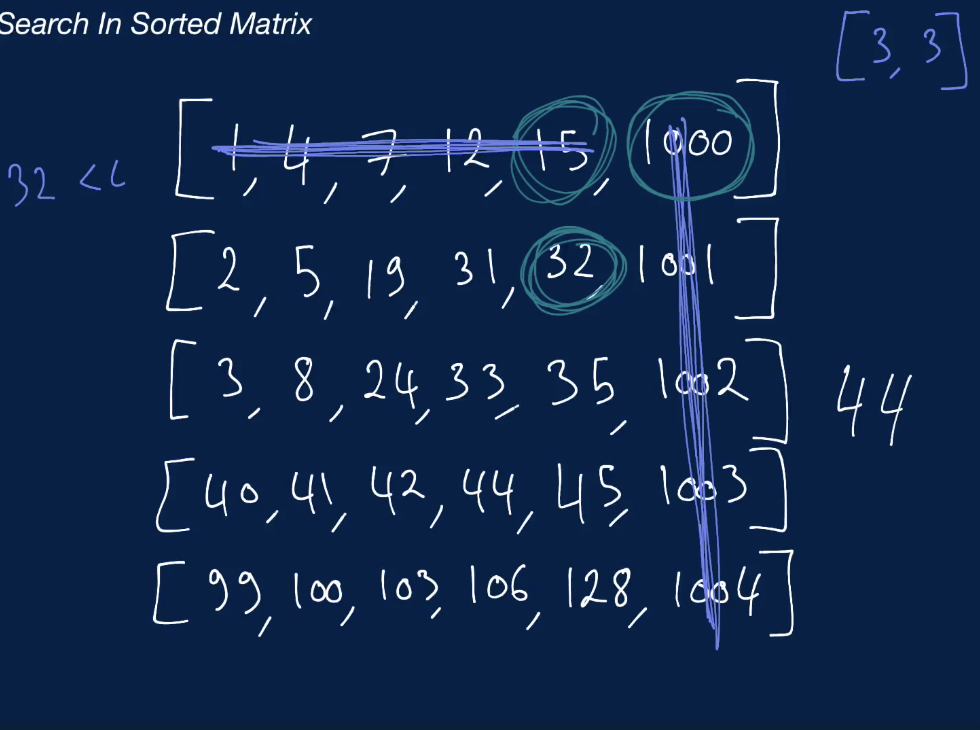 Search In Sorted Matrix
[3, 3]
[1, 4, 7, 12, 15, 1000]
32 <
[2, 5, 19, 31, 32 1001]
[3, 8, 24, 33, 35, 1002]
44
[40, 41, 42, 44, 45, 1003]
[99, 100, 103, 106, 128, 1004]